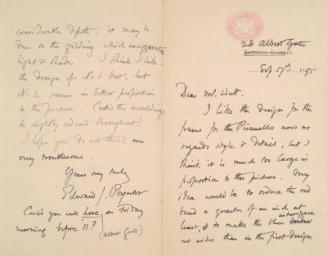 28 Albert Gate
Sep 17th 1895
Dear Mr. Watt.
I like the design for the
frame for the Pisanello now as
regards style & detail, but I
think it is much too large in
proportion to the picture. My
idea would be to reduce the red
band a quarter of an inch at
least, & to make the blue interspace
no wider than in the first design
considerable depth. it may be
due to the gilding which exaggerates
light & shade. I think I like
the design of No 1 best, but
No 2 seems in better proportion
to the picture. Could the mouldings
be slightly reduced throughout?
I hope you do not think me
very troublesome.
Yours very truly
Edward J. Poynter
Could you call here on Friday
morning before 11?
(Albert Gate)